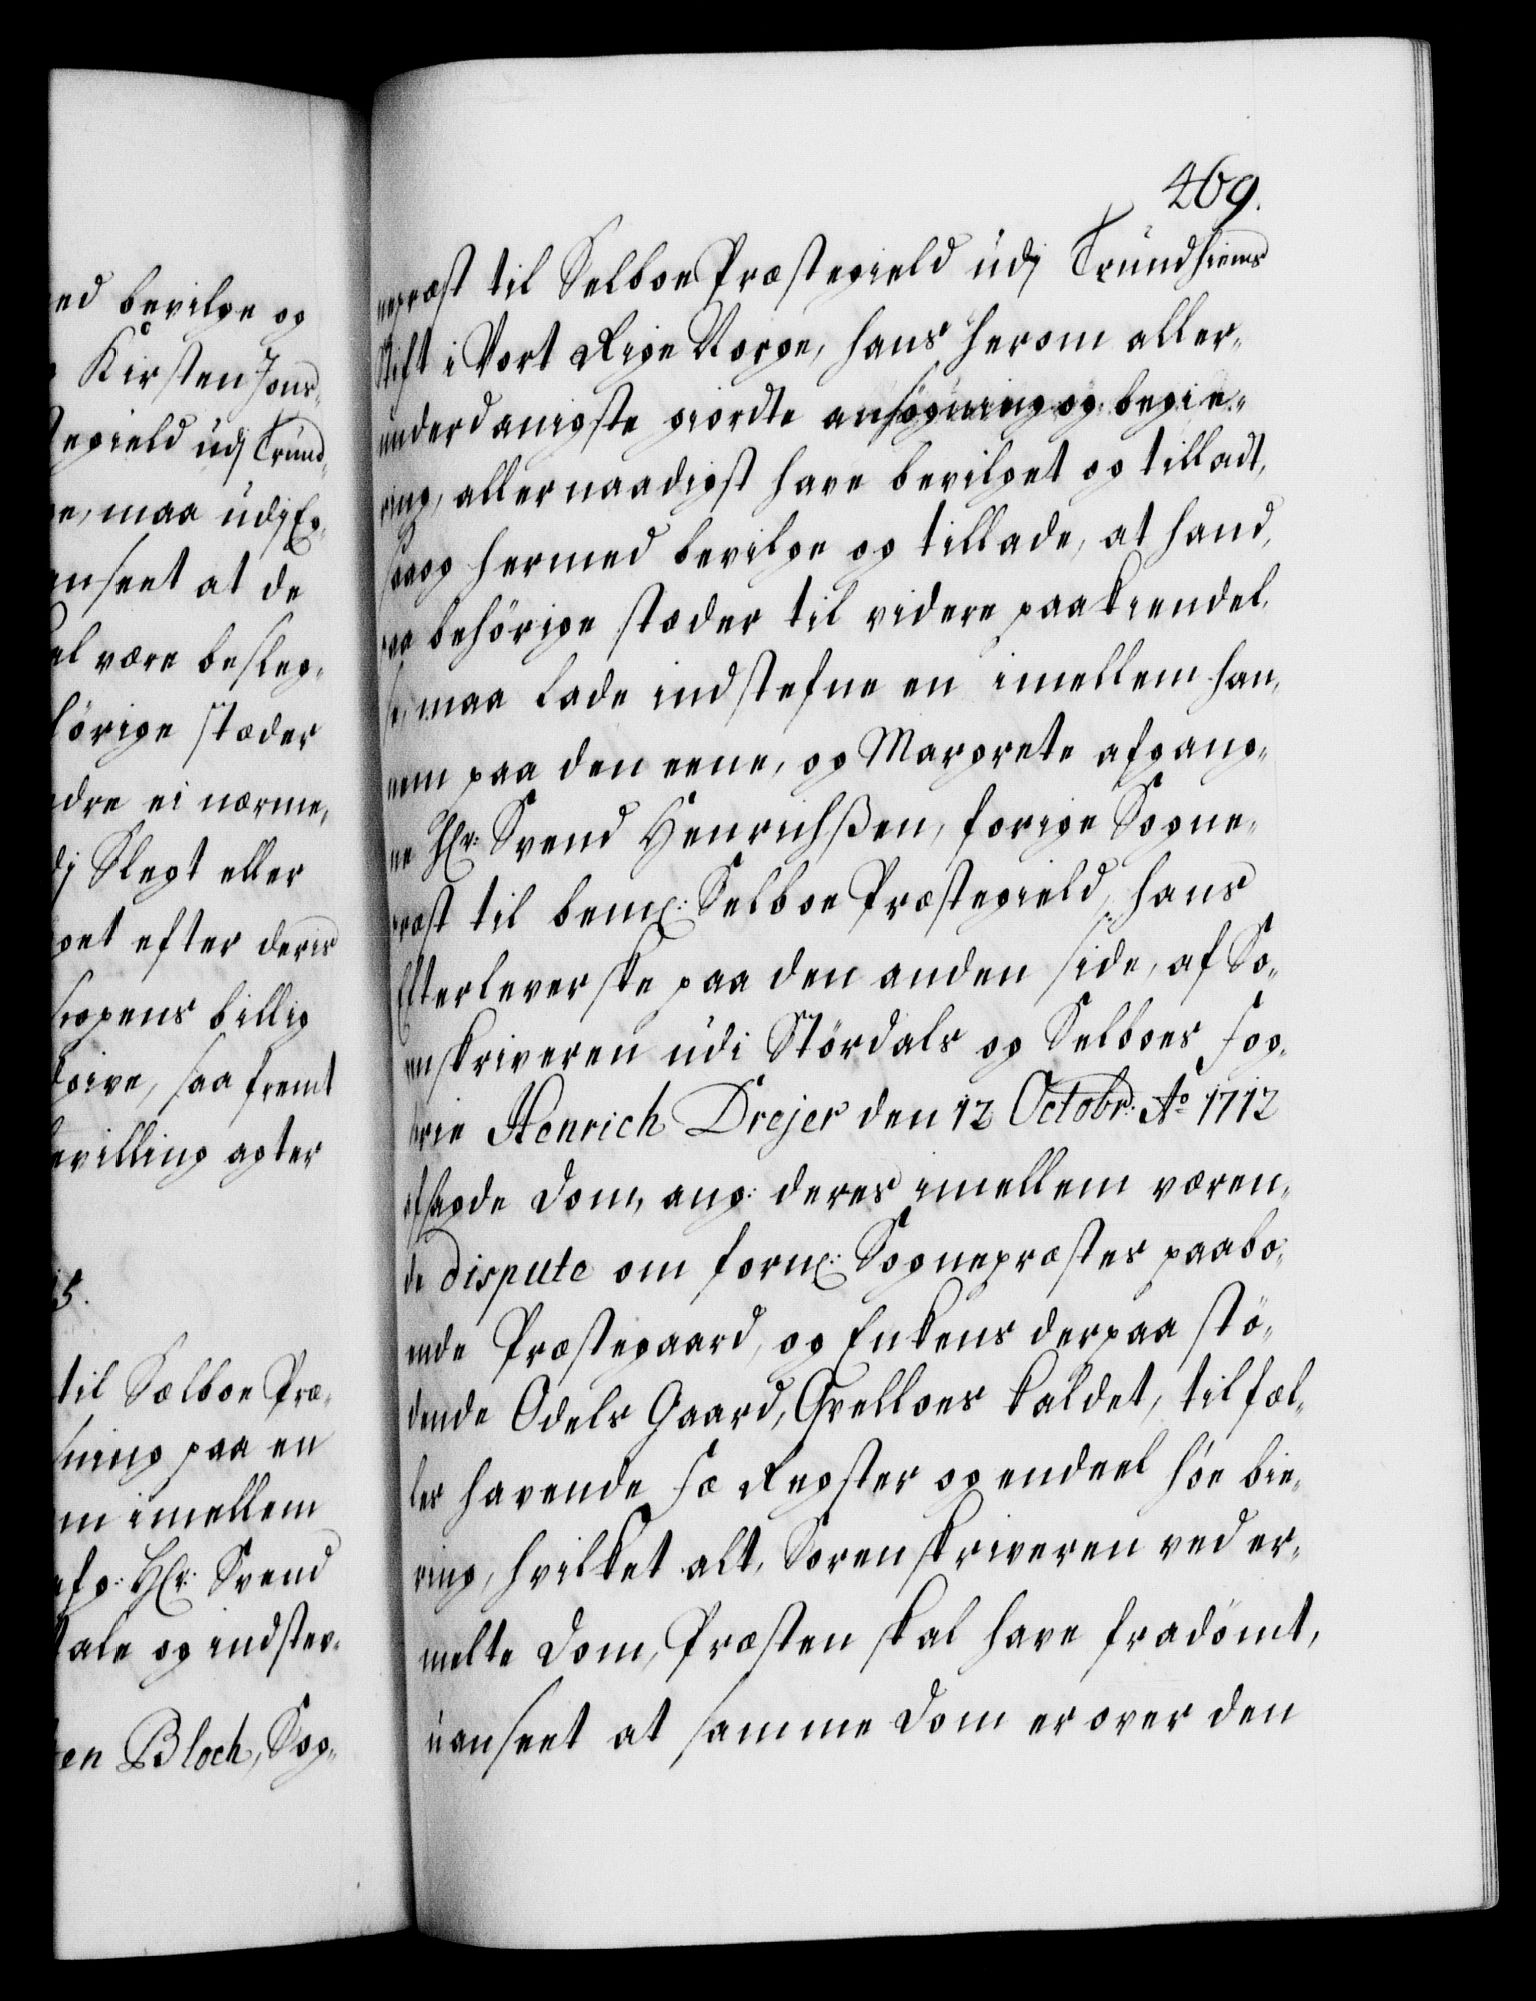 ed bevilge og
Kirsten Jons-
egield udj Trund-
ge, maa udj Eg-
anseet at de
al være besleg-
hörige stæder
dre ei nærme,
dj Slegt eller
get efter deris
kopens billig
give, saa fremt
evilling agter
5.
til Sælboe Præ-
ning paa en
m imellem
afg: Hr: Svend
tale og indstev-
en Bloch, Sog-
469.
nepræst til Selboe Præstegield udj Trundhiems
Stift i Vort Rige Norge, hans herom aller-
underdanigste giordte ansögning og begie-
ring, allernaadigst have bevilget og tilladt,
saaog hermed bevilge og tillade, at hand,
paa behörige stæder til videre paakiendel-
se, maa lade indstefne en imellem han,
nem paa den eene, og Margrete afgang-
ne Hr: Svend Henrichsen, forige Sogne-
præst til bem: Selboe Præstegield, hans
Efterleverske paa den anden side, af So-
renskriveren udi Stördals og Selboes fog-
derie Henrich Drejer den 12 Octobr: Ao 1712
afsagde Dom, ang: deres imellem væren-
de dispute om form: Sognepræstes paabo-
ende Præstegaard, og Enkens derpaa stö-
dende Odels Gaard, Qvelloes kaldet, til fæl-
les havende fæ Regster og endeel höe bie-
ring, hvilket alt, Sorenskriveren ved er-
melte Dom, Præsten skal have fradömt,
uanseet at samme Dom er over den